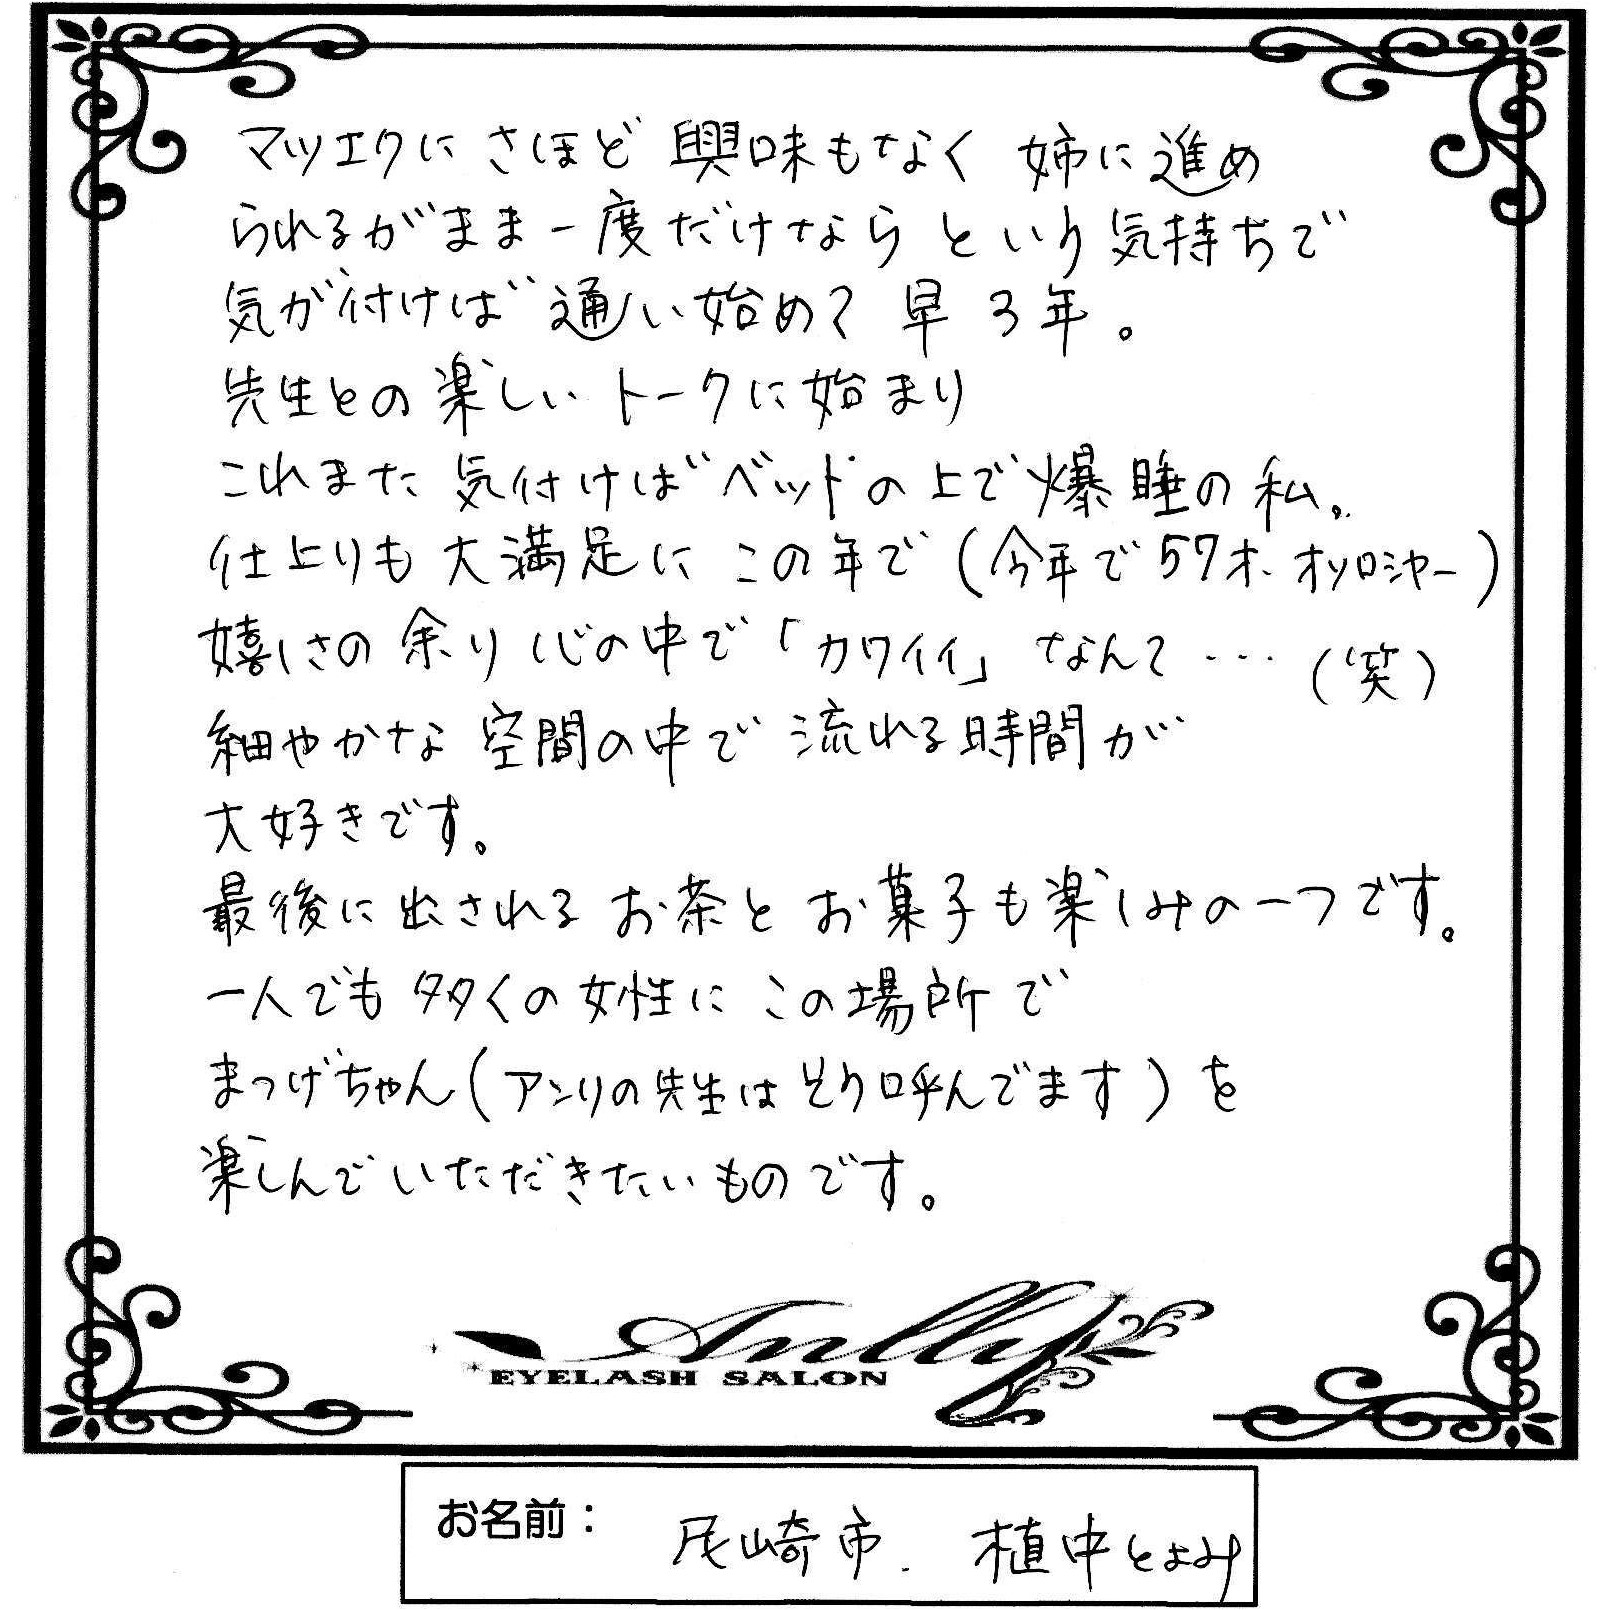 マツエクにさほど興味もなく 姉に進め
られるがまま一度だけなら という気持ちで
気が付けば通い始めて 早3年。
先生との楽しいトークに始まり
これまた気付けばベッドの上で爆睡の私。
仕上りも大満足に この年で(今年で57才.オソロシャー)
嬉しさの余り心の中で「カワイイ」なんて…(笑)
細やかな空間の中で流れる時間が
大好きです。
最後に出されるお茶とお菓子も楽しみの一つです。
一人でも多くの女性にこの場所で
まつげちゃん(アンリの先生はそう呼んでます)を
楽しんでいただきたいものです。
EYELASH SALON
お名前: 尼崎市. 植中とよみ